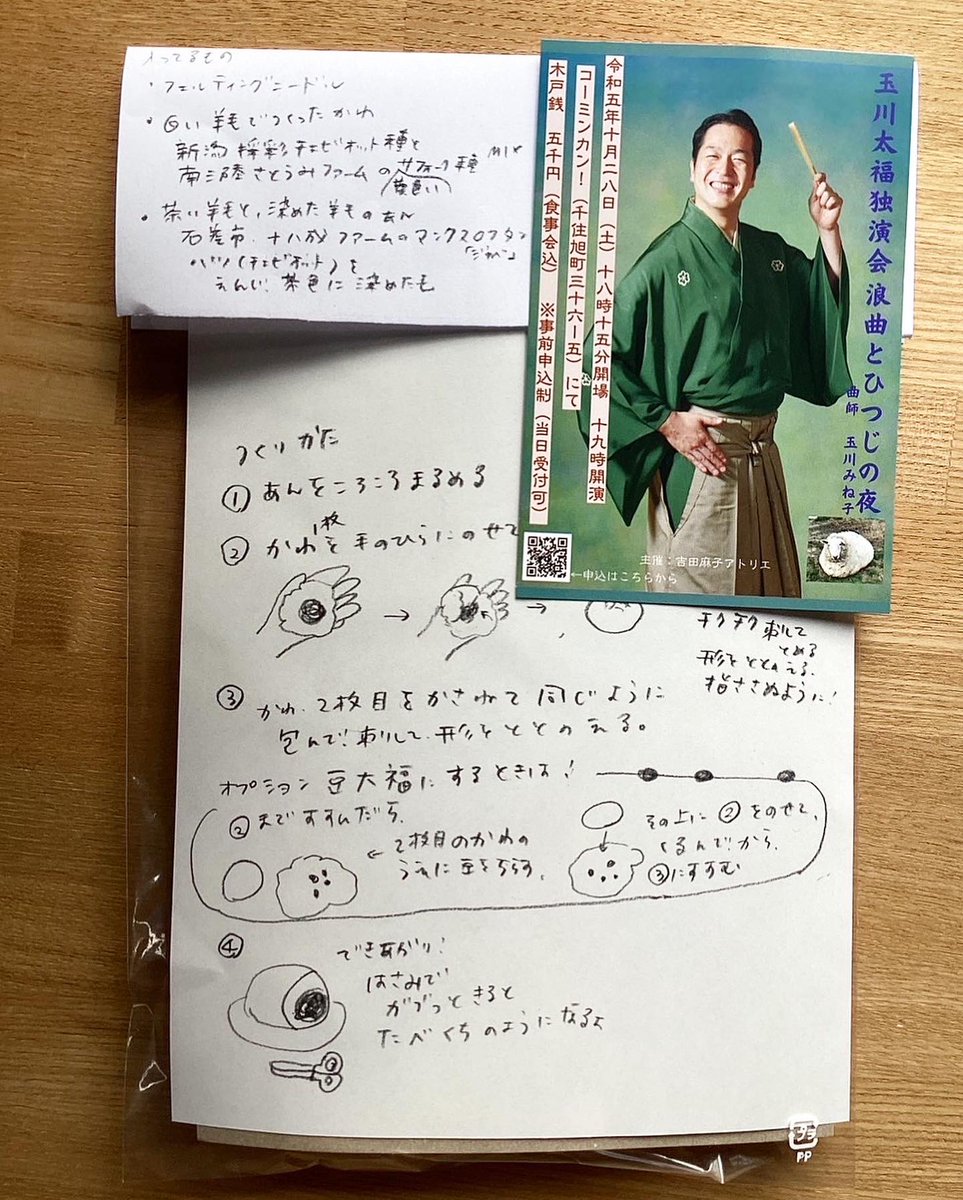 ・フェルティングニードル
・白い羊毛でつくったかわ
新潟 チェビオット種と
南三陸さとうみファームのサフォーク種 MIX
・茶い羊毛と、染めた羊毛のあん
石巻市、十八成ファームのマンクスロフタン
「ジャベ」
(チェビオット)を
茶色に染めたもの
玉川太福独演会 浪曲とひつじの夜
曲師 玉川みね子
令和五年十月二八日(土) 十八時十五分開場 十九時開演
コーミンカン!(千住旭町三十六ー五)にて
木戸銭 五千円(食事会込) ※事前申込制(当日受付可)
主催:吉田麻子アトリエ
←申込はこちらから
つくりかた
① あんをころころまるめる
② かわ1枚を手のひらにのせて
チクチク刺して
とめる
形をととのえる。
指ささぬように!
③ かわ、2枚目をかさねて同じように
包んで!刺して、形をととのえる。
オプション 豆大福にするときは!
②まですすんだら、
←2枚目のかわの
うえに豆をちらす。
その上に②をのせて、
くるんでから、
③にすすむ
④ できあがり!
はさみで
ガブっときると
たべくちのようになるよ
プラ
PP